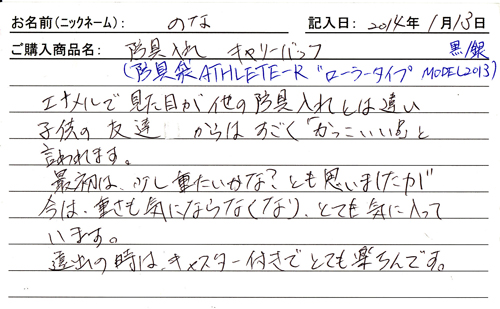 お名前(ニックネーム): のな 記入日: 2014年1月13日
ご購入商品名: 防具入れ キャリーバック 黒/銀
(防具袋ATHLETE-R "ローラータイプ" MODEL2013)
エナメルで見た目が他の防具入れとは違い
子供の友達からはすごく「かっこいい!!」と
言われます。
最初は、少し重たいかな?とも思いましたが
今は、重さも気にならなくなり、とても気に入って
います。
遠出の時は、キャスター付きでとても楽ちんです。